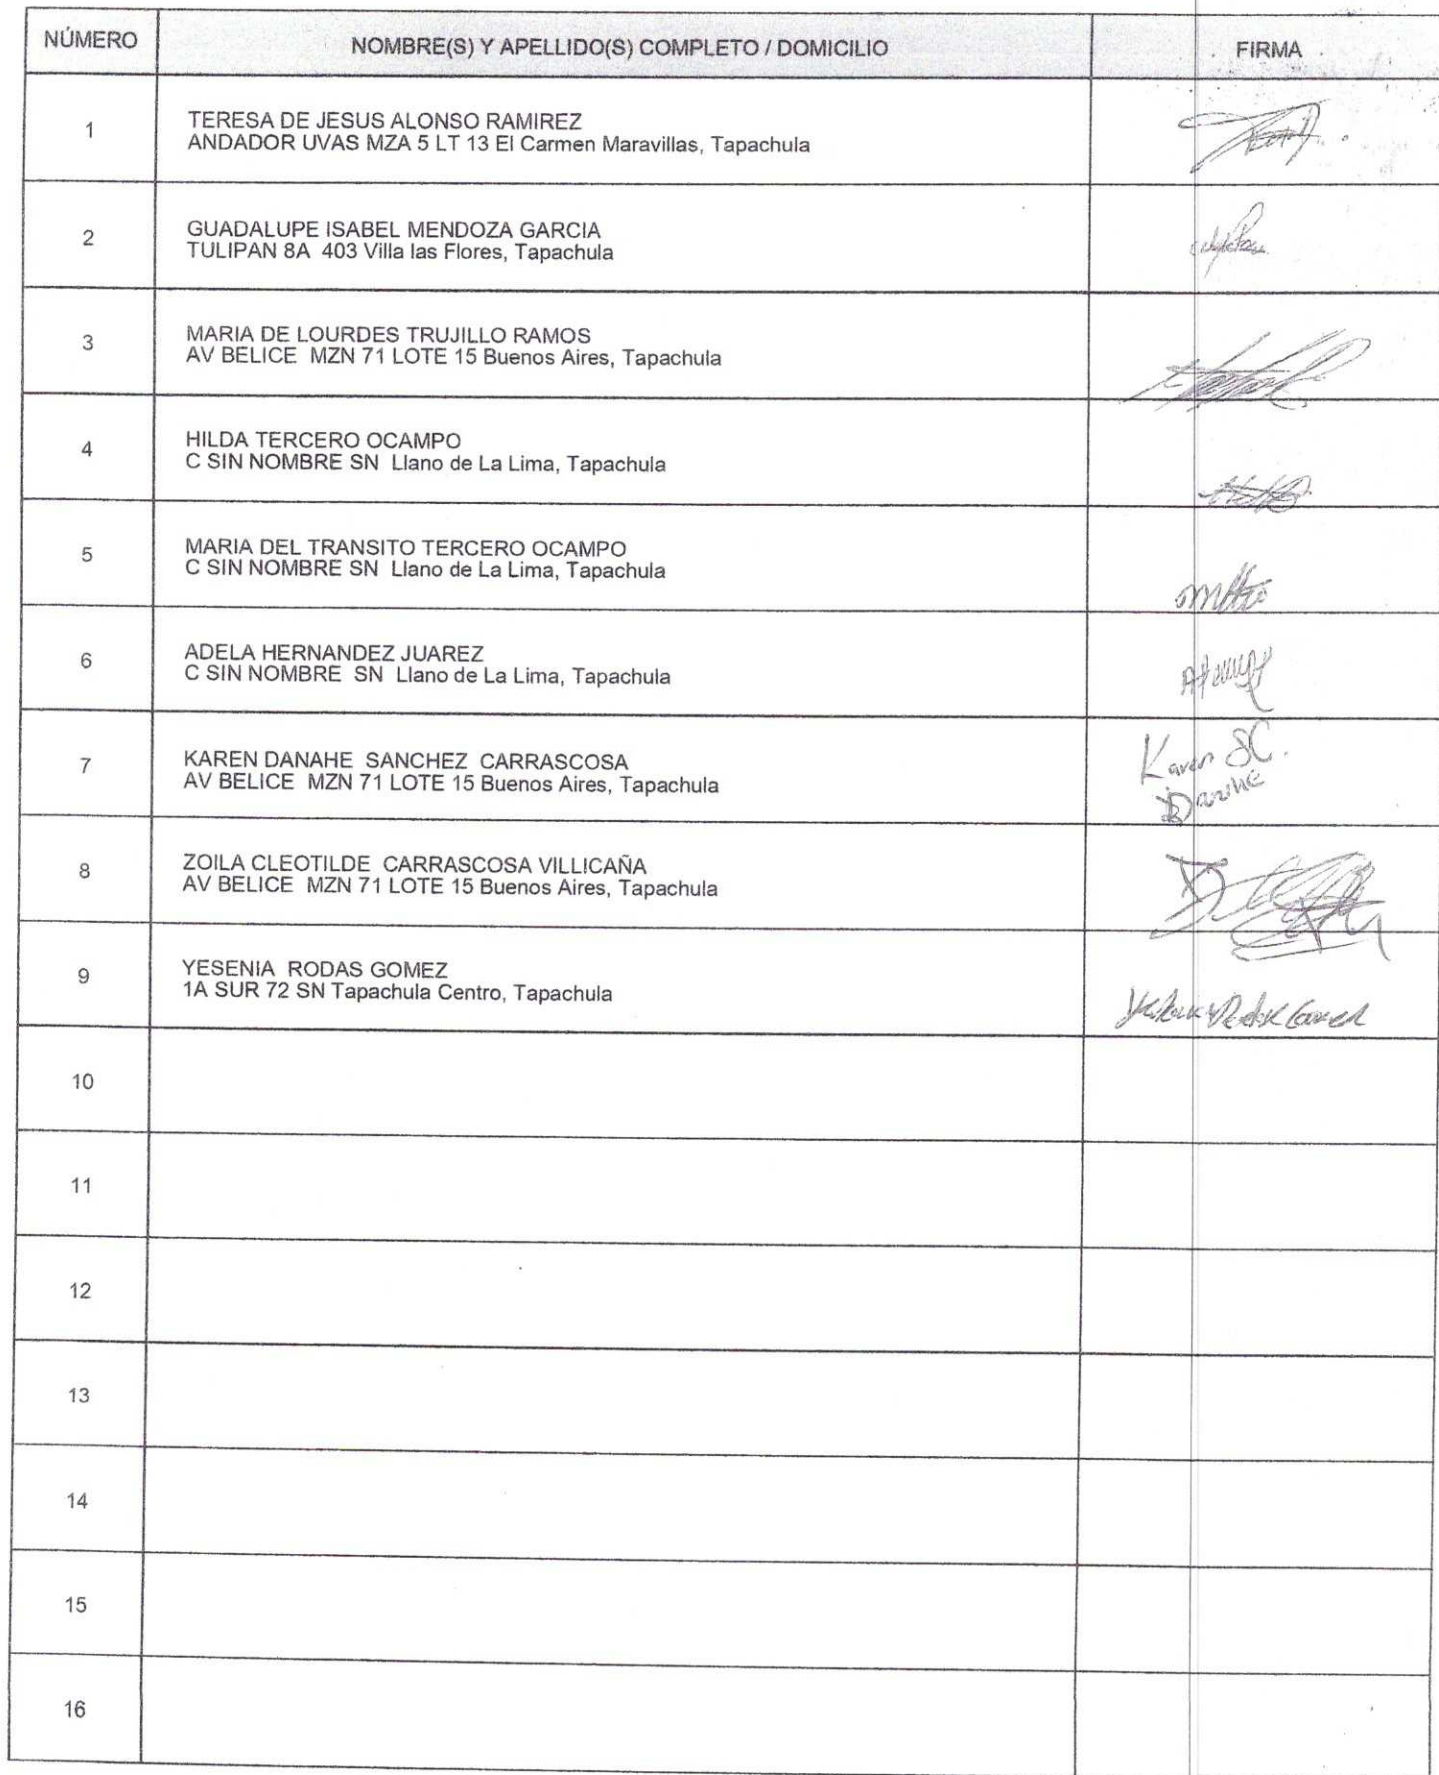 NÚMERO NOMBRE(S) Y APELLIDO(S) COMPLETO / DOMICILIO FIRMA
1 TERESA DE JESUS ALONSO RAMIREZ
ANDADOR UVAS MZA 5 LT 13 El Carmen Maravillas, Tapachula
2 GUADALUPE ISABEL MENDOZA GARCIA
TULIPAN 8A 403 Villa las Flores, Tapachula
3 MARIA DE LOURDES TRUJILLO RAMOS
AV BELICE MZN 71 LOTE 15 Buenos Aires, Tapachula
4 HILDA TERCERO OCAMPO
C SIN NOMBRE SN Llano de La Lima, Tapachula
5 MARIA DEL TRANSITO TERCERO OCAMPO
C SIN NOMBRE SN Llano de La Lima, Tapachula
6 ADELA HERNANDEZ JUAREZ
C SIN NOMBRE SN Llano de La Lima, Tapachula
7 KAREN DANAHE SANCHEZ CARRASCOSA Karen SC.
AV BELICE MZN 71 LOTE 15 Buenos Aires, Tapachula
8 ZOILA CLEOTILDE CARRASCOSA VILLICAÑA
AV BELICE MZN 71 LOTE 15 Buenos Aires, Tapachula
9 YESENIA RODAS GOMEZ
1A SUR 72 SN Tapachula Centro, Tapachula
10
11
12
13
14
15
16